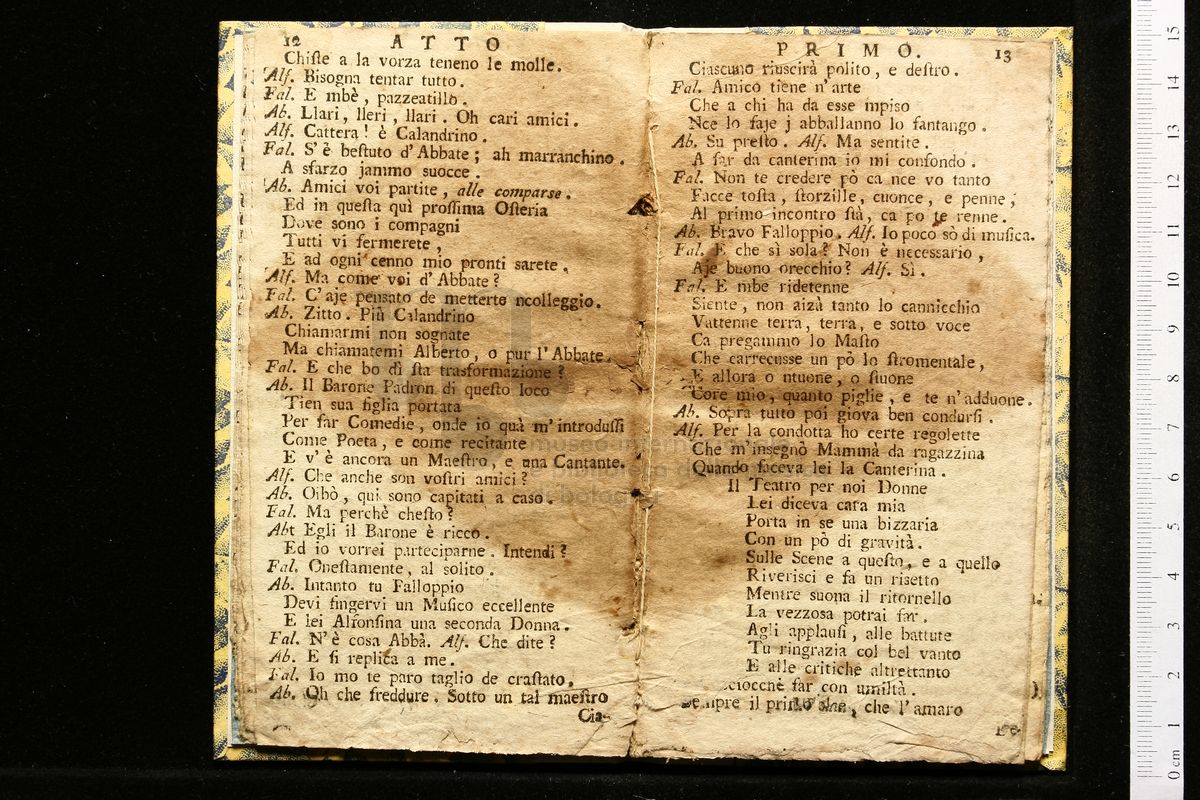 12 ATTO
Chiſte a la vorza teneno le molle.
Alf. Bisogna tentar tutto.
Fal. E mbè, pazzeatillo.
Ab. Llari, lleri, llari. Oh cari amici.
Alf. Cattera! è Calandrino.
Fal. S'è beſtuto d'Abbate; ah marranchino.
A sfarzo jammo suocce.
Ab. Amici voi partite, alle comparse.
Ed in queſta quì proſſima Oſteria
Dove sono i compagni
Tutti vi fermerete,
E ad ogni cenno mio pronti sarete.
Alf. Ma come voi d'Abbate?
Fal. C'aje pensato de metterte ncolleggio.
Ab. Zitto. Più Calandrino
Chiamarmi non sognate
Ma chiamatemi Alberto, o pur l'Abbate.
Fal. E che bo dì ſta trasformazione?
Ab. Il Barone Padron di queſto loco
Tien sua figlia portata
Per far Comedie, onde io quà m'introduſſi
Come Poeta, e come recitante
E v'è ancora un Maeſtro, e una Cantante.
Alf. Che anche son voſtri amici?
Ab. Oibò, quì sono capitati a caso.
Fal. Ma perchè cheſto?
Abt Egli il Barone è ricco.
Ed io vorrei parteciparne. Intendi?
Fal. Oneſtamente, al solito.
Ab. Intanto tu Falloppio
Devi fingervi un Muſico eccellente
E lei Alfonſina una seconda Donna.
Fal. N'è cosa Abbà. Alf. Che dite?
Ab. E ſi replica a me.
Fal. Io mo te paro taglio de craſtato.
Ab. Oh che freddure. Sotto un tal maeſtro
Cia-
PRIMO. 13
Ciascuno riuscirà polito, e deſtro.
Fal. Amico tiene n'arte
Che a chi ha da esse mpiso
Nce lo faje j abballanno lo fantango.
Ab. Su preſto. Alf. Ma sentite.
A far da canterina io mi confondo.
Fal. Non te credere pò ca nce vo tanto
Facce toſta, ſtorzille, cuonce, e penne;
Al primo incontro ſtà, ca po te renne.
Ab. Bravo Falloppio. Alf. Io poco sò di muſica.
Fal. E che sì sola? Non è necessario,
Aje buono orecchio? Alf. Sì.
Fal. E mbe ridetenne
Siente, non aizà tanto lo cannicchio
Vattenne terra, terra, e sotto voce
Ca pregammo lo Maſto
Che carrecusse un pò lo ſtromentale,
E allora o ntuone, o ſtuone
Core mio, quanto piglie, e te n'adduone.
Ab. Sopra tutto poi giova ben condurſi.
Alf. Per la condotta ho certe regolette
Che m'insegnò Mammà da ragazzina
Quando faceva lei la Canterina.
Il Teatro per noi Donne
Lei diceva cara mia
Porta in se una bizzaria
Con un pò di gravità.
Sulle Scene a queſto, e a quello
Riverisci e fa un risetto
Mentre suona il ritornello
La vezzosa potrai far.
Agli applauſi, alle battute
Tu ringrazia col bel vanto
E alle critiche altrettanto
far con umiltà.
il che l'amaro